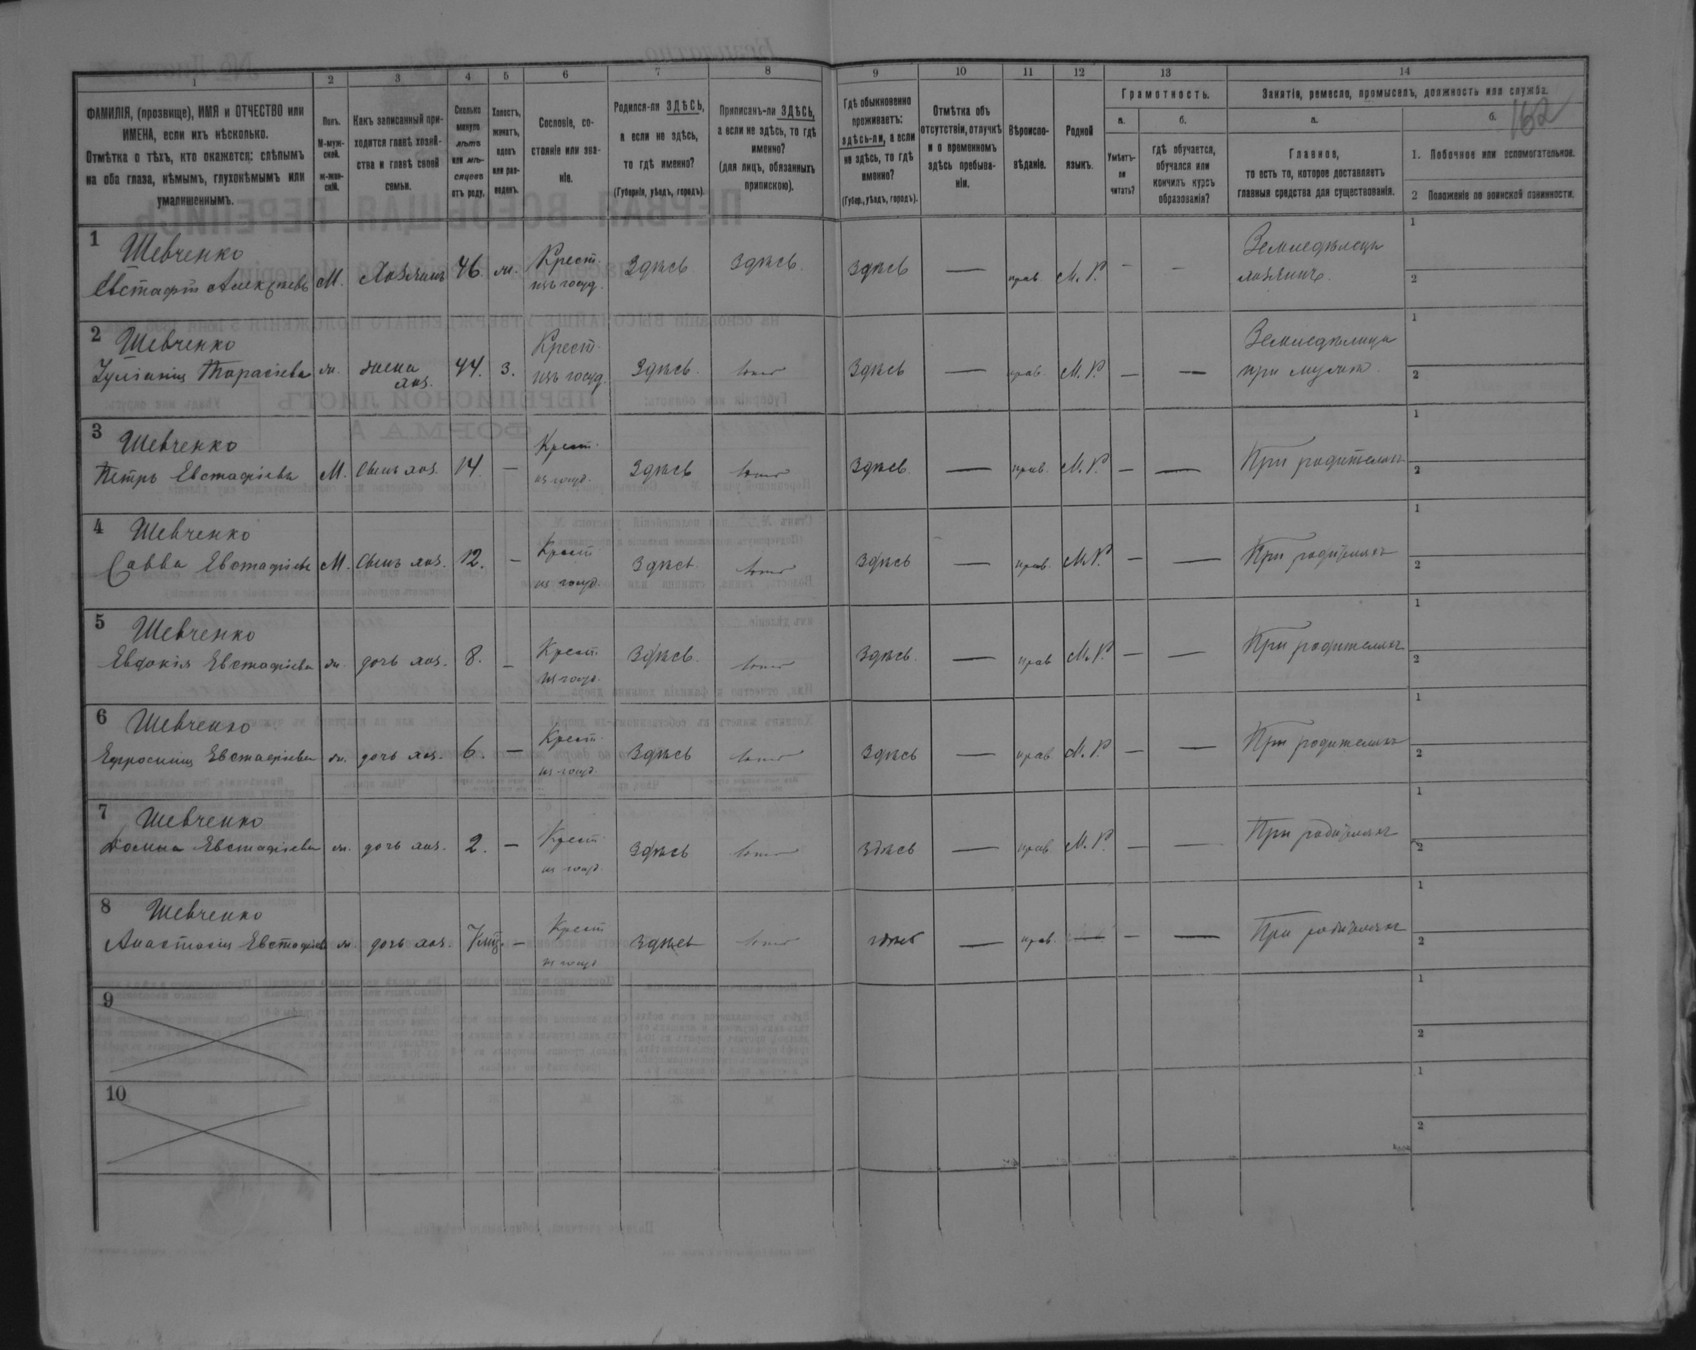 162
1 2 3 4 5 6 7 8 9 10 11 12 13 14
ФАМИЛІЯ, (прозвище), ИМЯ и ОТЧЕСТВО или
ИМЕНА, если ихъ нѣсколько.
Отмѣтка о тѣхъ, кто окажется: слѣпымъ
на оба глаза, нѣмымъ, глухонѣмымъ или
умалишеннымъ.
Полъ.
М-муж-
ской.
ж-жен-
скій.
Какъ записанный при-
ходится главѣ хозяй-
ства и главѣ своей
семьи.
Сколько
минуло
лѣтъ
или мѣ-
сяцевъ
отъ роду.
Холостъ,
женатъ,
вдовъ
или раз-
веденъ.
Сословіе, со-
стояніе или зва-
ніе.
Родился-ли ЗДѢСЬ,
а если не здѣсь,
то гдѣ именно?
(Губернія, уѣздъ, городъ).
Приписанъ-ли ЗДѢСЬ,
а если не здѣсь, то гдѣ
именно?
(для лицъ, обязанныхъ
припискою).
Гдѣ обыкновенно
проживаетъ:
здѣсь-ли, а если
не здѣсь, то гдѣ
именно?
(Губер., уѣздъ, городъ).
Отмѣтка объ
отсутствіи, отлучкѣ
и о временномъ
здѣсь пребыва-
ніи.
Вѣроиспо-
вѣданіе.
Родной
языкъ.
Грамотность.
а.
Умѣетъ-
ли
читать?
б.
Гдѣ обучается,
обучался или
кончилъ курсъ
образованія?
Занятія, ремесло, промыселъ, должность или служба.
а.
Главное,
то есть то, которое доставляетъ
главныя средства для существованія.
б.
1. Побочное или вспомогательное.
2 Положеніе по воинской повинности.
1 Шевченко Крест. Земледѣлецъ 1
Евстафій Алексѣевъ М. Хозяинъ 46. ж. изъ госуд. Здѣсь Здѣсь. Здѣсь — прав. М. Р. — — хозяинъ. 2
2 Шевченко Крест. Земледѣлица 1
Іуліанія Тарасіева ж. жена хоз. 44. з. изъ госуд. Здѣсь. Здѣсь — прав. М. Р. — — при мужѣ. 2
3 Шевченко Крест. 1
Петръ Евстафіевъ М. Сынъ хоз. 14. — из госуд. Здѣсь Здѣсь. — прав. М. Р. — — При родителях 2
4 Шевченко Крест 1
Савва Евстафіевъ М. Сынъ хоз. 12. — из госуд. Здѣсь Здѣсь — прав. М. Р. — — При родителях 2
5 Шевченко Крест 1
Евдокія Евстафіева ж. дочь хоз. 8. — из госуд. Здѣсь. Здѣсь. — прав М. Р. — — При родителях 2
6 Шевченко Крест. 1
Ефросинія Евстафіева ж. дочь хоз. 6. — из госуд. Здѣсь Здѣсь — прав М. Р. — — При родителях 2
7 Шевченко Крест 1
Домна Евстафіева ж. дочь хоз. 2. — из госуд. Здѣсь здѣсь — прав М. Р. — — При родителях 2
8 Шевченко Крест 1
Анастасія Евстафіева ж. дочь хоз. — из госуд. Здѣсь здѣсь — прав. — — — При родителях 2
9 1
2
10 1
2